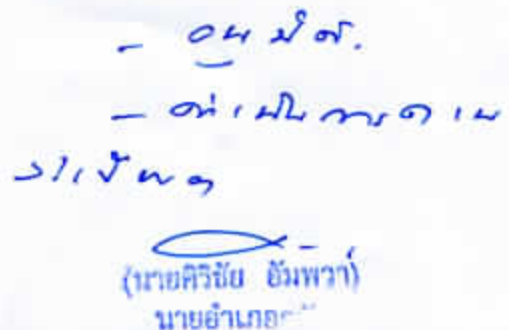 - อนุมัติ
- ดำเนินการตาม
ระเบียบฯ
(นายศิริชัย อัมพวา)
นายอำเภอ